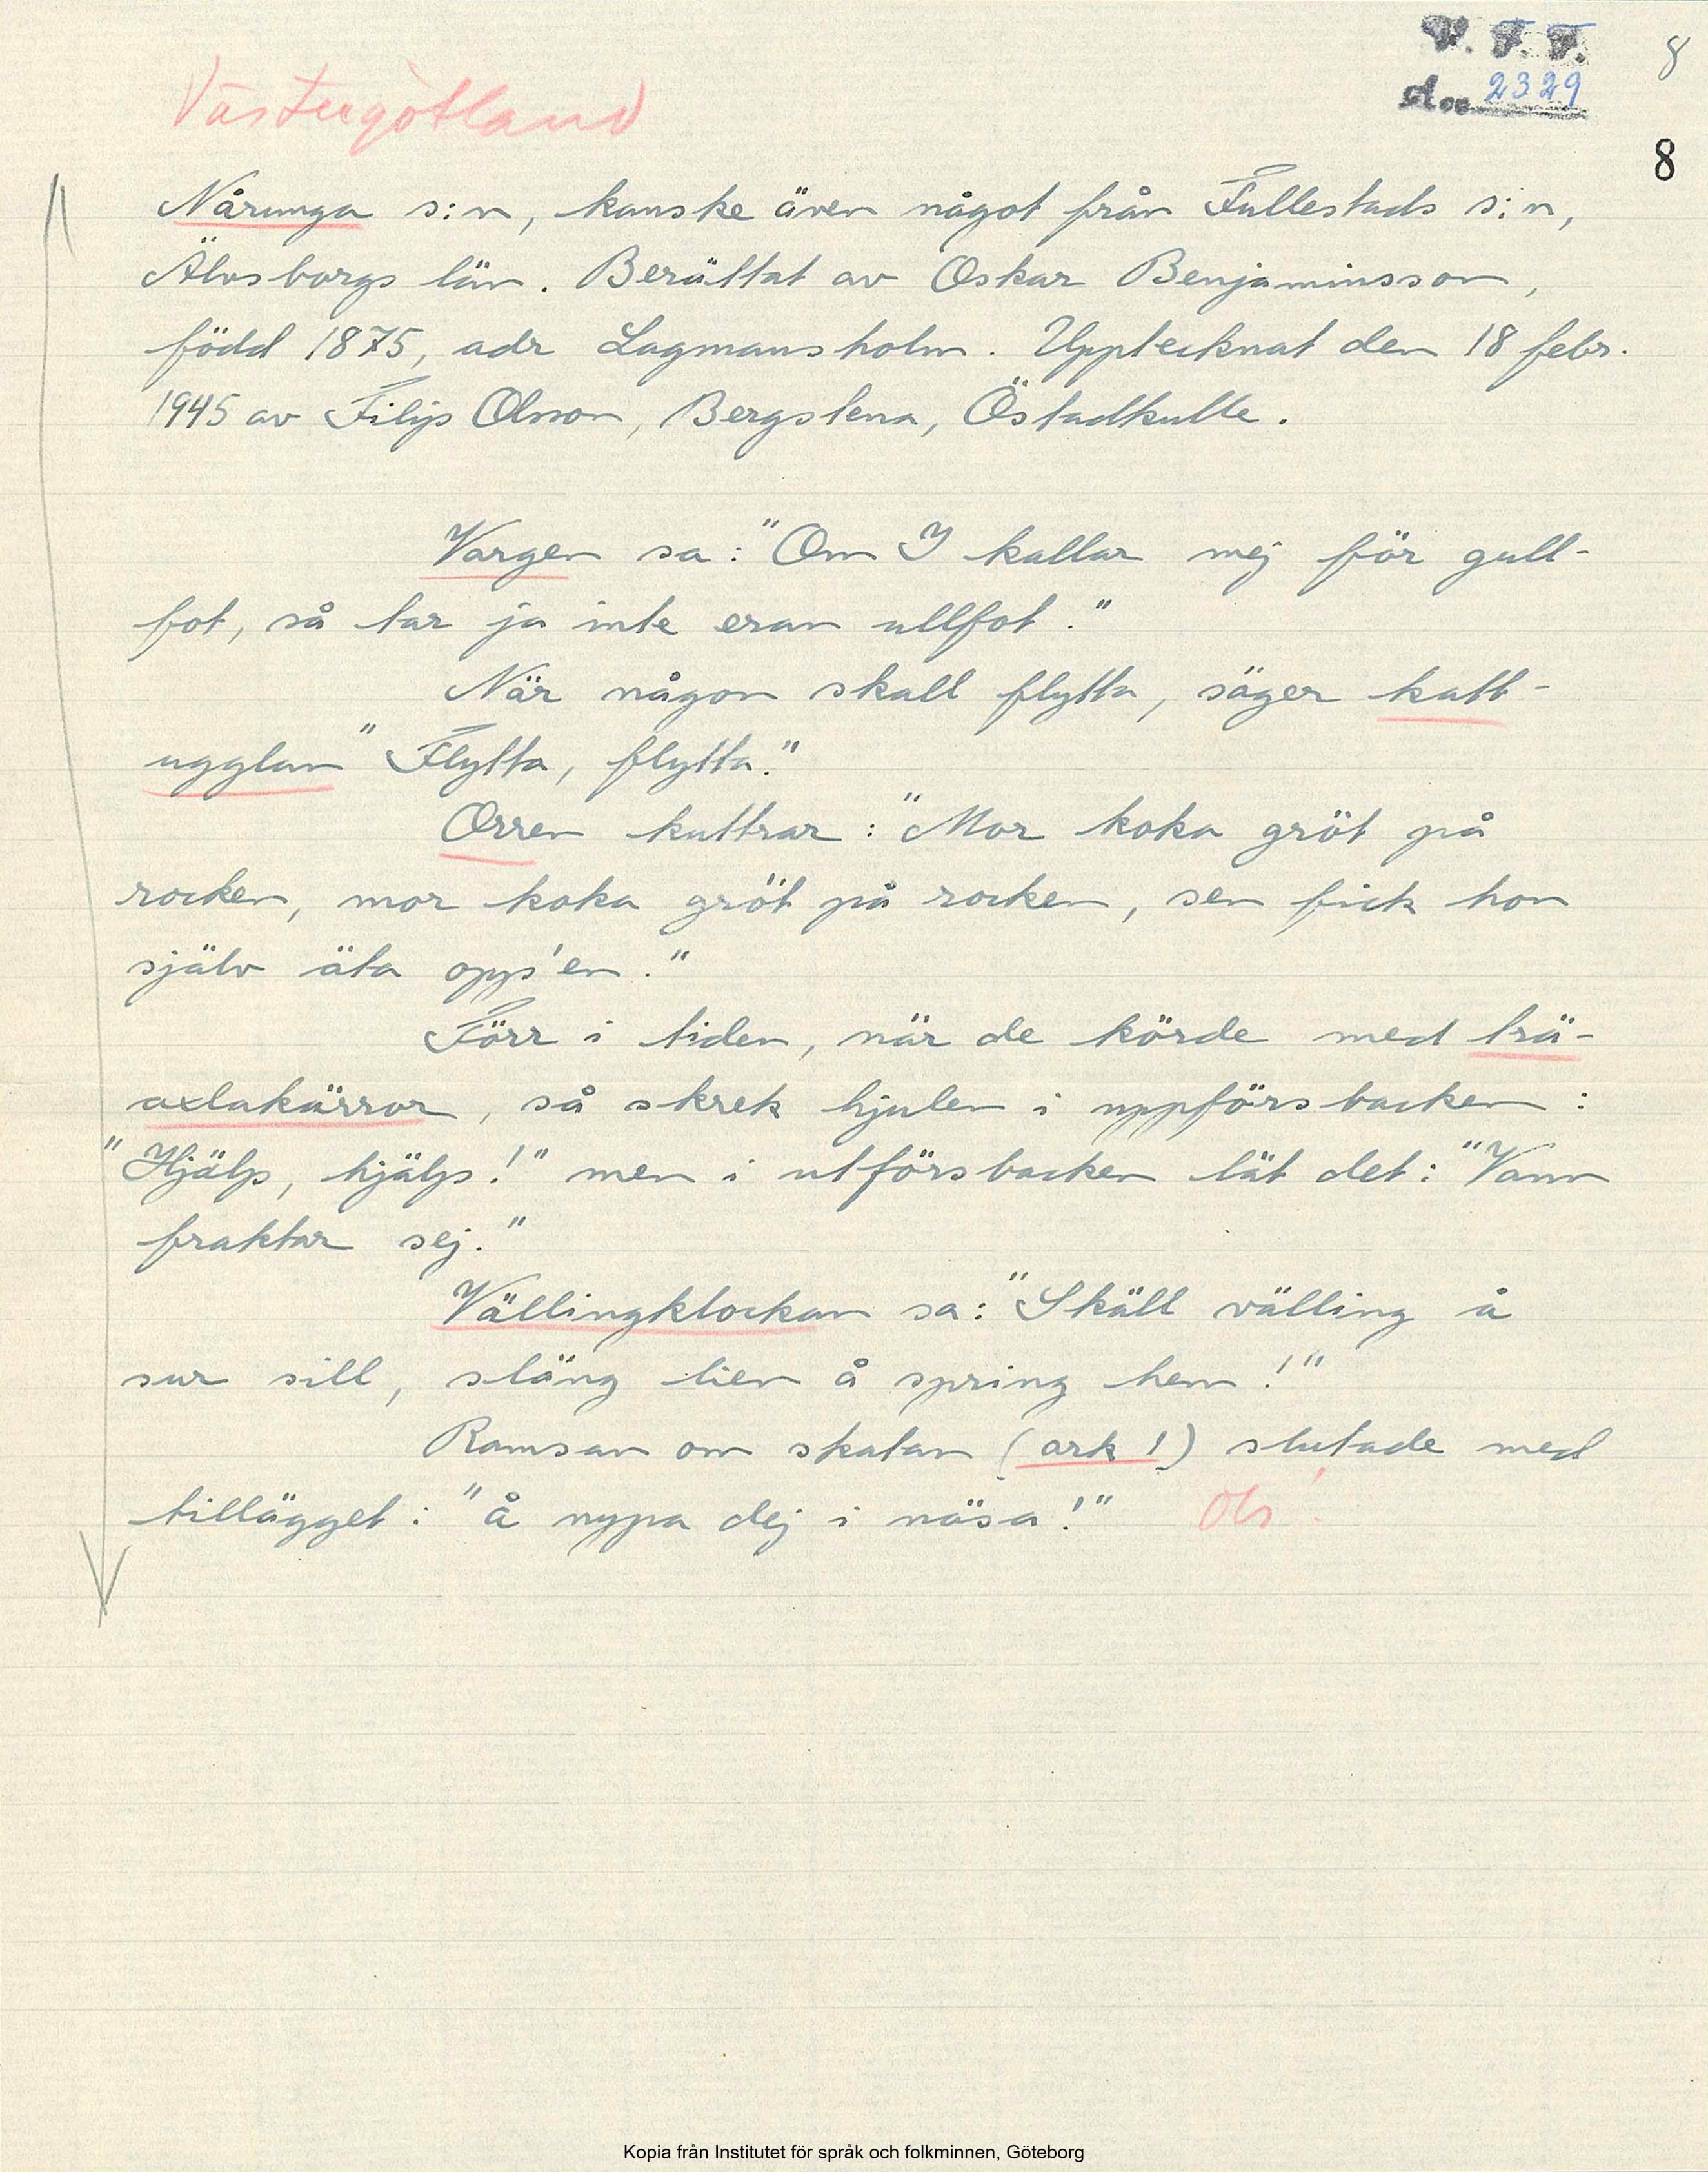 V. F. F.
8
d. 2329
Västergötland
8
Nårunga s:n, kanske även något från Fullestads s:n,
Älvsborgs län. Berättat av Oskar Benjaminsson,
född 1875, adr Lagmansholm. Upptecknat den 18 febr.
1945 av Filip Olsson, Bergstena, Östadkulle.
Vargen sa: "Om I kallar mej för gull-
fot, så tar ja inte eran ullfot."
När någon skall flytta, säger katt-
ugglan "Flytta, flytta."
Orren kuttrar: "Mor koka gröt på
rocken, mor koka gröt på rocken, sen fick hon
själv äta opp'en."
Förr i tiden, när de körde med trä-
axlakärror, så skrek hjulen i uppförsbacken:
"Hjälp, hjälp!" men i utförsbacken lät det: "Vann
fraktar sej."
Vällingklockan sa: "Skäll välling å
sur sill, släng lien å spring hem!"
Ramsan om skatan (ark 1) slutade med
tillägget: "å nypa dej i näsa!" Obs!
Kopia från Institutet för språk och folkminnen, Göteborg